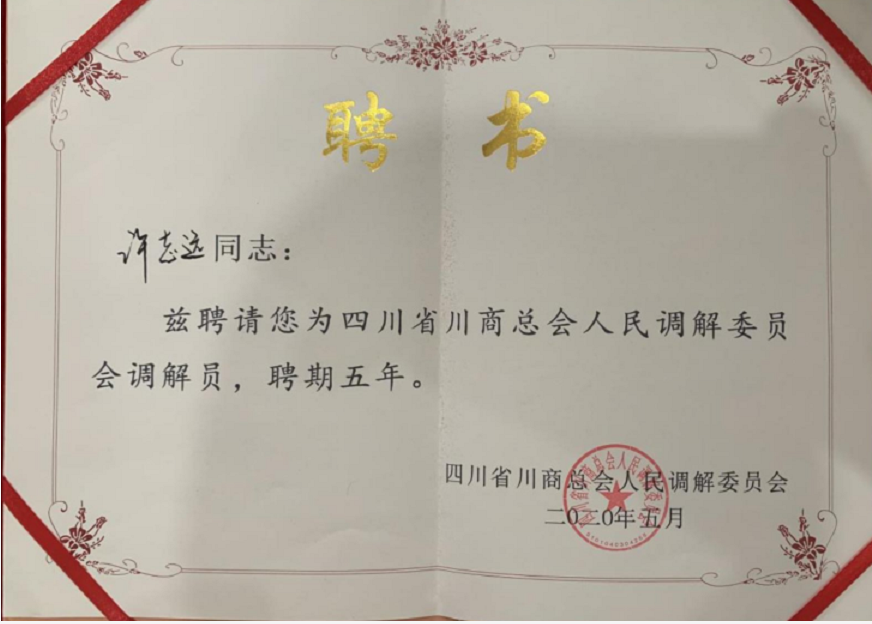 聘书
许志远同志：
兹聘请您为四川省川商总会人民调解委员
会调解员，聘期五年。
四川省川商总会人民调解委员会
二〇二〇年五月
四川省川商总会人民调解委员会